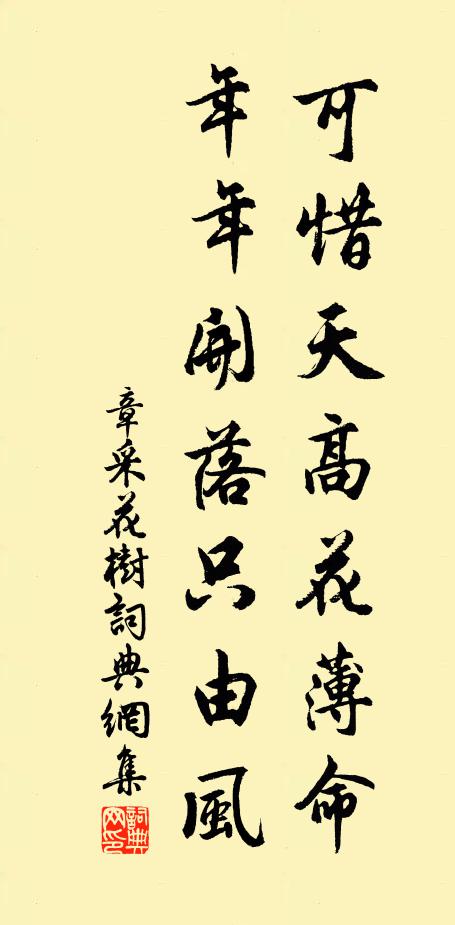 可惜天高花薄命
年年開落只由風
章采花樹詞典網集
詞典网印